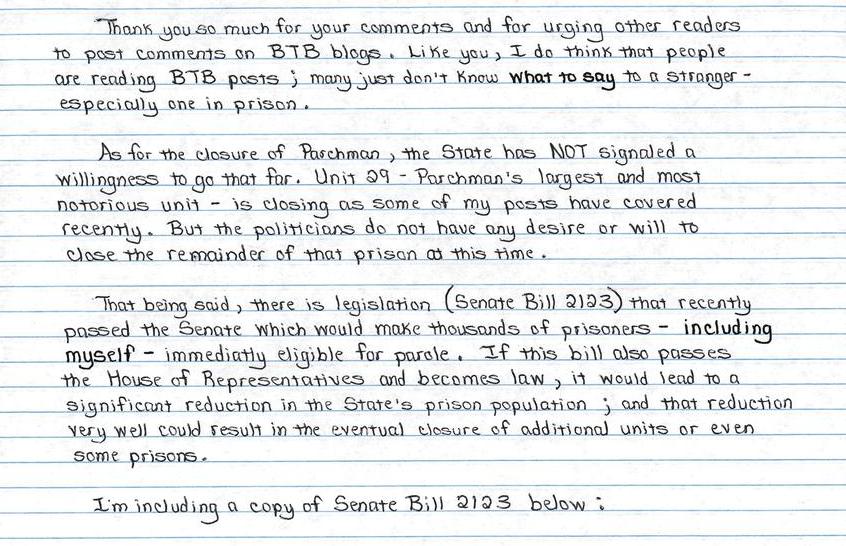 Thank you so much for your comments and for urging other readers
to post comments on BTB blogs. Like you, I do think that people
are reading BTB posts; many just don't know what to say to a stranger -
especially one in prison.
As for the closure of Parchman, the State has NOT signaled a
willingness to go that far. Unit 29 - Parchman's largest and most
notorious unit - is closing as some of my posts have covered
recently. But the politicians do not have any desire or will to
close the remainder of that prison at this time.
That being said, there is legislation (Senate Bill 2123) that recently
passed the Senate which would make thousands of prisoners - including
myself - immediatly eligible for parole. If this bill also passes
the House of Representatives and becomes law, it would lead to a
significant reduction in the State's prison population; and that reduction
very well could result in the eventual closure of additional units or even
some prisons.
I'm including a copy of Senate Bill 2123 below: